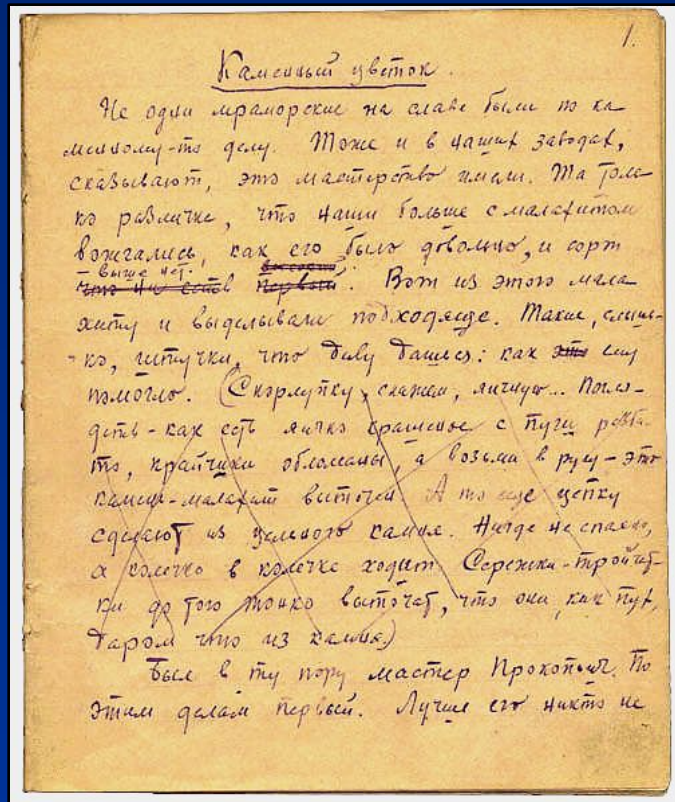 1.
Каменный цветок.
Не одни мраморские на славе были по ка
менному-то делу. Тоже и в наших заводах,
сказывают, это мастерство имели. Та толь
ко различка, что наши больше с малахитом
вожгались, как его было довольно, и сорт
выше нет. высоты
что ни есть первый. Вот из этого мала
хиту и выделывали подходяще. Такие, слышь-
ко, штучки, что диву дашься: как это ему
помогло. (Скорлупку, скажем, яичную... Погля-
деть - как есть яичко крашеное с пуги разби-
то, крайчики обломаны, а возьми в руку - это
камень-малахит выточен. А то еще цепку
сделают из цельного камня. Нигде не спаено,
а колечко в колечке ходит. Сережки-тройчат-
ки до того тонко выточат, что они, как пух,
даром что из камня.)
Был в ту пору мастер Прокопьич. По
этим делам первый. Лучше его никто не